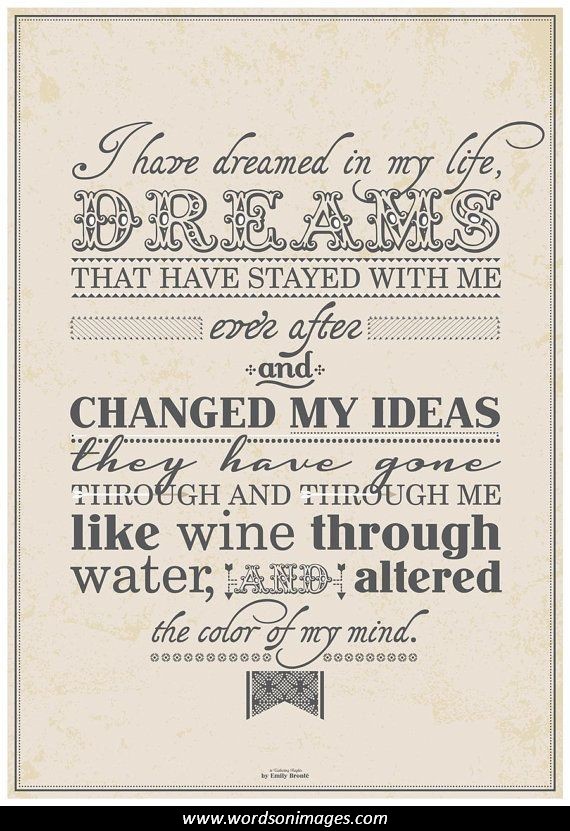 I have dreamed in my life,
DREAMS
THAT HAVE STAYED WITH ME
ever after
and
CHANGED MY IDEAS
they have gone
THROUGH AND THROUGH ME
like wine through
water, AND altered
the color of my mind.
in Wuthering Heights
by Emily Brontë
www.wordsonimages.com